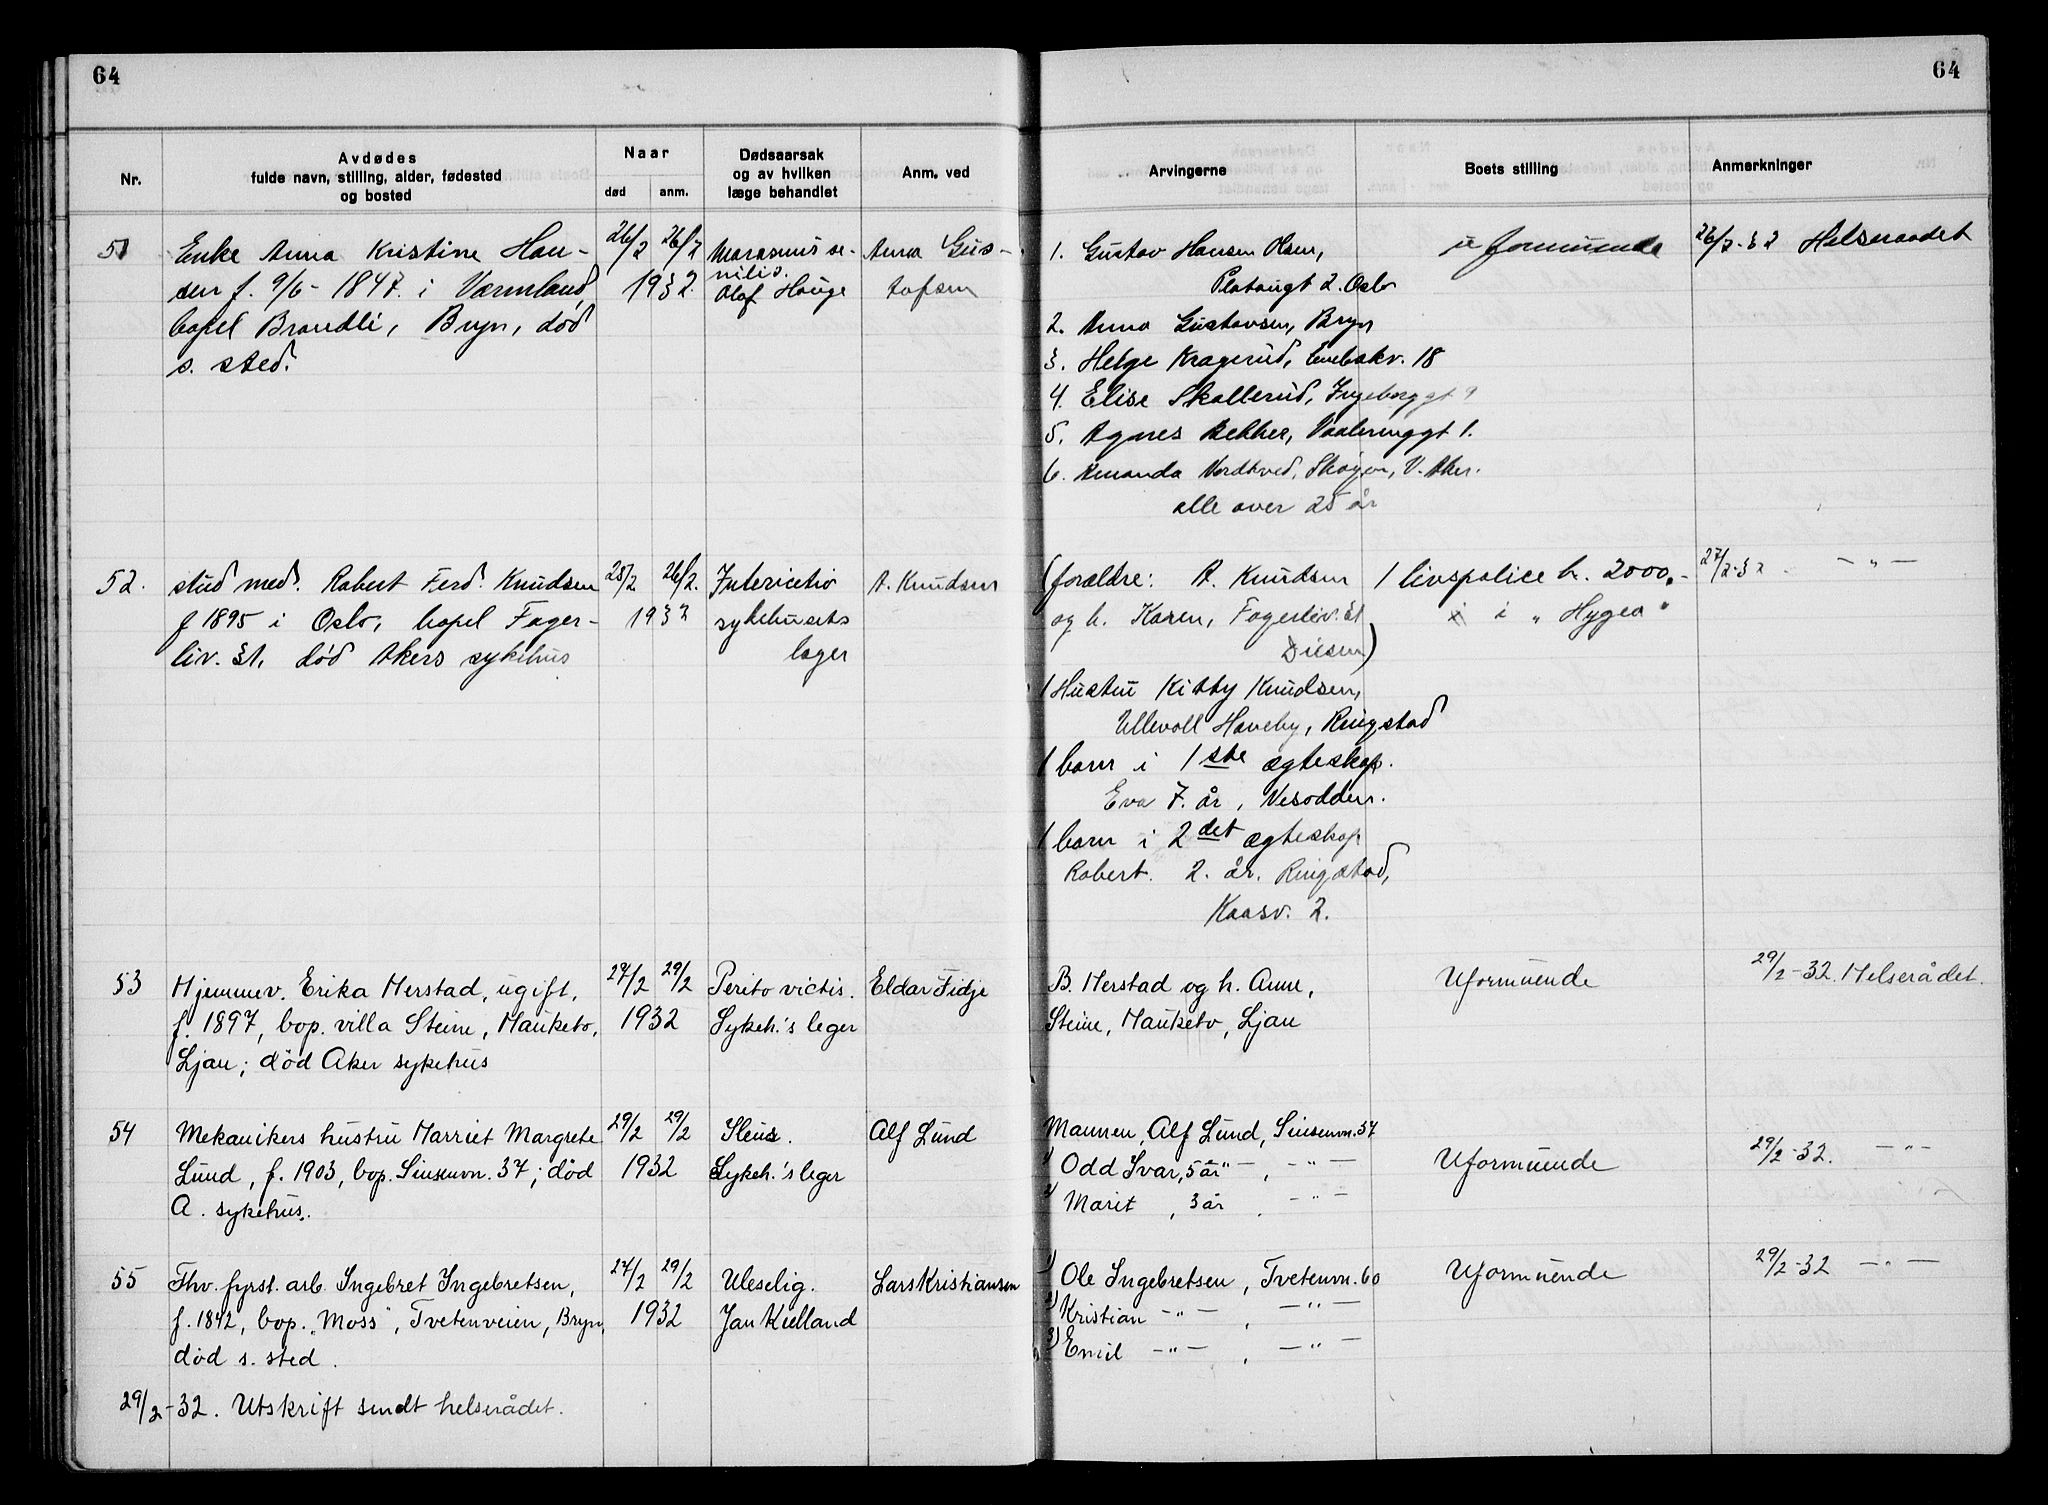 64
64
Nr.
Avdødes
fulde navn, stilling, alder, fødested
og bosted
Naar
død
anm.
Dødsaarsak
og av hvilken
læge behandlet
Anm. ved
Arvingerne
Boets stilling
Anmerkninger
51
Enke Anna Kristine Han-
sen f. 9/6 - 1847. i Värmland,
bopel Brandli, Bryn, død
s. sted.
26/2 26/2
1932.
Marasmus se-
nilis.
Olaf Hauge
Anna Gus-
tafsen
1. Gustav Hansen Olsen,
Platougt 2. Oslo
2. Anna Gustavsen, Bryn
3. Helge Kragerud, Enebakv. 18
4. Elise Skallerud, Ingeborggt 9
5. Agnes Bekker, Vaalerenggt 1.
6. Amanda Nordtved, Skøyen, V. Aker.
alle over 25 år
uformuende
26/2-32 Helseraadet
52.
stud med. Robert Ferd. Knudsen
f 1895 i Oslo, bopel Fager-
liv. 31, død Akers sykehus
25/2 26/2.
1932
Intoxicatio
sykehusets
læger
A. Knudsen
(forældre: A. Knudsen
og h. Karen, Fagerliv. 31
Disen)
1 Hustru Kitty Knudsen,
Ullevoll Haveby, Ringstad
1 barn i 1ste ægteskap.
Eva 7. år, Nesodden.
1 barn i 2det ægteskap
Robert. 2. år. Ringstad,
Kaasv. 2.
1 livspolice kr. 2000,-
i „Hygea"
27/2-32 — „ —
53
Hjemmev. Erika Herstad, ugift,
f. 1897, bop. villa Steine, Hauketo,
Ljan; død Aker sykehus
27/2 29/2
1932
Peritovictis.
Sykeh.'s leger
Eldar Fidje
B. Herstad og h. Anne,
Steine, Hauketo, Ljan
Uformuende
29/2-32. Helserådet.
54
Mekanikers hustru Harriet Margrete
Lund, f. 1903, bop. Sinsenvn. 37; død
A. sykehus.
29/2 29/2
1932
Ileus.
Sykeh.'s leger
Alf Lund
Mannen, Alf Lund, Sinsenvn. 37
1) Odd Ivar, 5 år — „ —, — „ —
2) Marit, 3 år, — „ —
Uformuende
29/2-32. — „ —
55
Fhv. fyrst. arb. Ingebret Ingebretsen,
f. 1842, bop. „Moss", Tvetenveien, Bryn,
død s. sted.
27/2 29/2
1932
Uleselig.
Jan Kielland
Lars Kristiansen
1) Ole Ingebretsen, Tvetenvn. 60
2) Kristian — „ —, — „ —
3) Emil — „ —, — „ —
Uformuende
29/2-32 — „ —
29/2-32. Utskrift sendt helserådet.